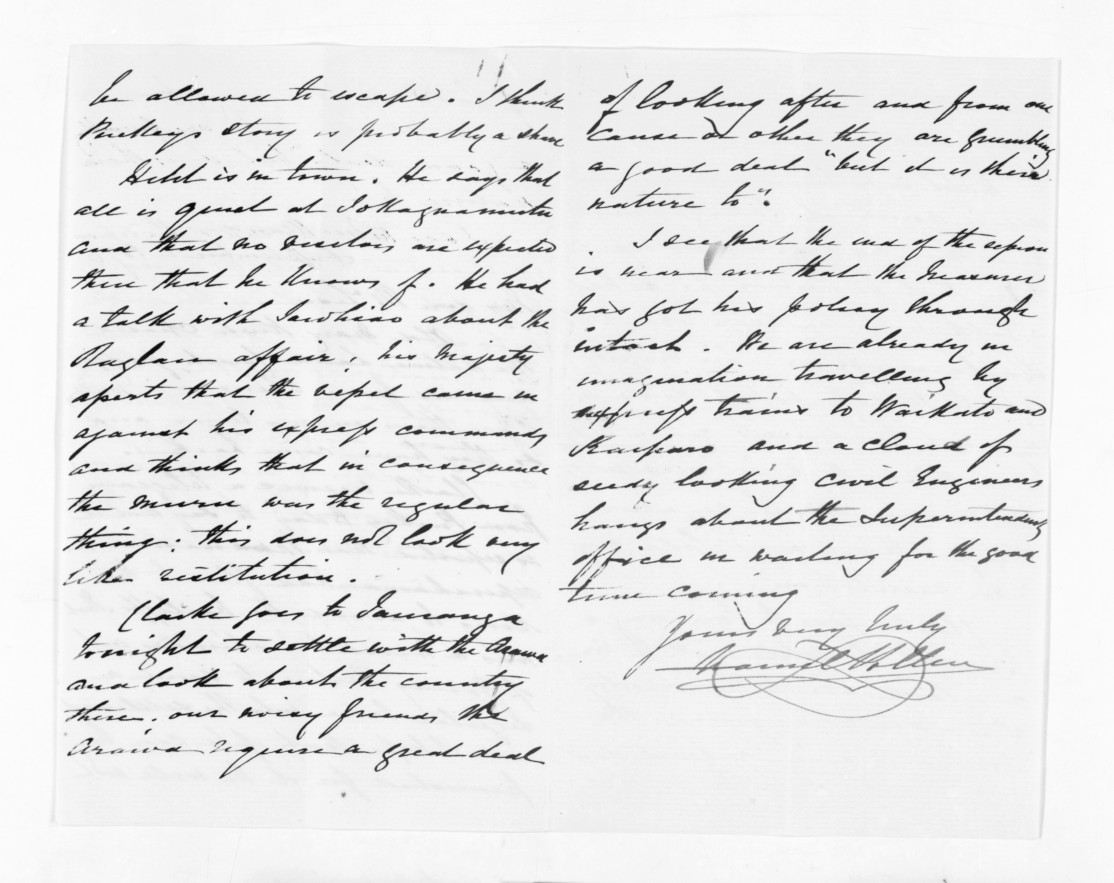 be allowed to escape. I think
Puckeys story is probably a sham
is in town. He says that
all is quiet at Tokaguamutu
and that no visitors are expected
there that he knows of. He had
a talk with Tawhiao about the
Raglan affair, his Majesty
sperts that the vessel came in
against his express commands
and thinks that in consequence
the muru was the regular
thing; this does not look very
like restitution.
Clarke goes to Tauranga
tonight to settle with the Arawa
and look about the country
there. our noisy friends the
Arawa require a great deal
of looking after and from one
cause or other they are grumbling
a good deal "but it is their
nature to".
I see that the end of the session
is near and that the Treasurer
has got his policy through
intact. We are already in
imagination travelling by
express trains to Waikato and
Kaipara and a cloud of
seedy looking Civil Engineers
hangs about the Superintendents
office in waiting for the good
time coming
Yours very truly
Daniel Pollen